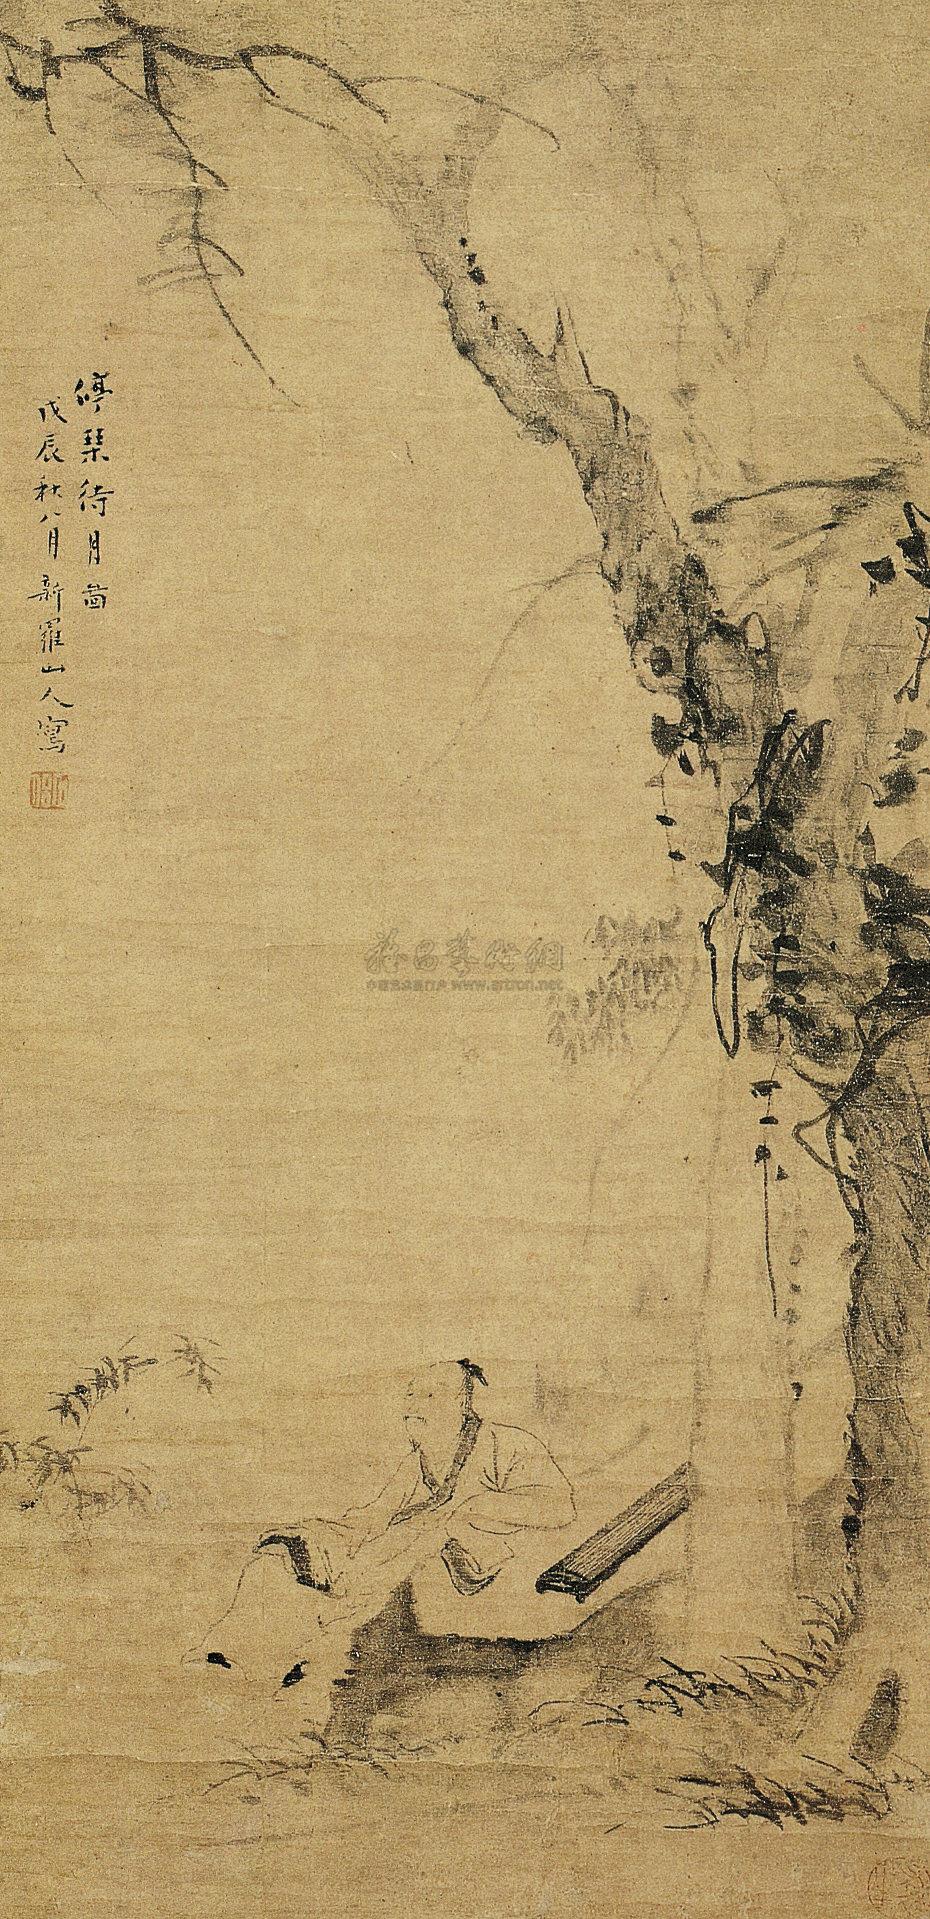 停琴待月啚
戊辰秋八月新羅山人寫
www.artron.net